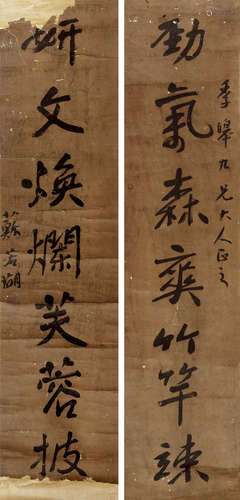 勁氣森爽竹竿竦
季皞九兄大人正之
妍文煥爛芙蓉披
蘇若瑚